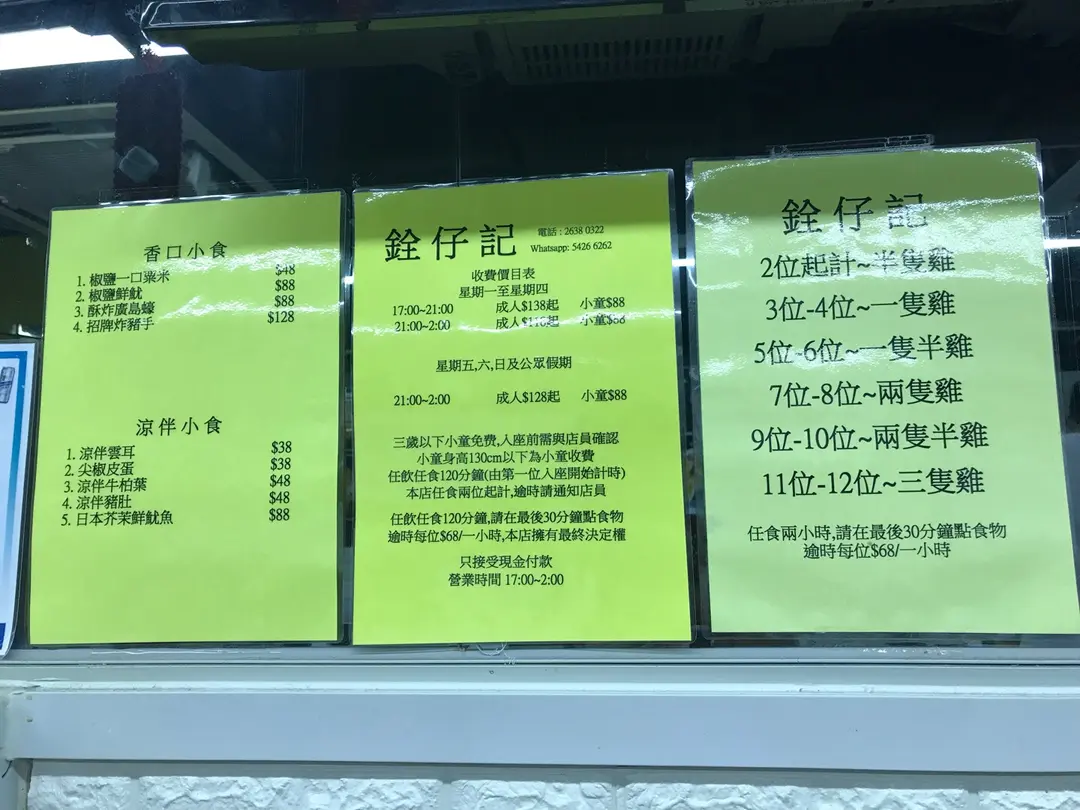 香口小食
1. 椒鹽一口粟米 $48
2. 椒鹽鮮魷 $88
3. 酥炸廣島蠔 $88
4. 招牌炸豬手 $128
涼伴小食
1. 涼伴雲耳 $38
2. 尖椒皮蛋 $38
3. 涼伴牛柏葉 $48
4. 涼伴豬肚 $48
5. 日本芥茉鮮魷魚 $88
銓仔記
電話 : 2638 0322
Whatsapp: 5426 6262
收費價目表
星期一至星期四
17:00~21:00 成人$138起 小童$88
21:00~2:00 成人$118起 小童$88
星期五,六,日及公眾假期
21:00~2:00 成人$128起 小童$88
三歲以下小童免費,入座前需與店員確認
小童身高130cm以下為小童收費
任飲任食120分鐘(由第一位入座開始計時)
本店任食兩位起計,逾時請通知店員
任飲任食120分鐘,請在最後30分鐘點食物
逾時每位$68/一小時,本店擁有最終決定權
只接受現金付款
營業時間 17:00~2:00
銓仔記
2位起計~半隻雞
3位-4位~一隻雞
5位-6位~一隻半雞
7位-8位~兩隻雞
9位-10位~兩隻半雞
11位-12位~三隻雞
任食兩小時,請在最後30分鐘點食物
逾時每位$68/一小時